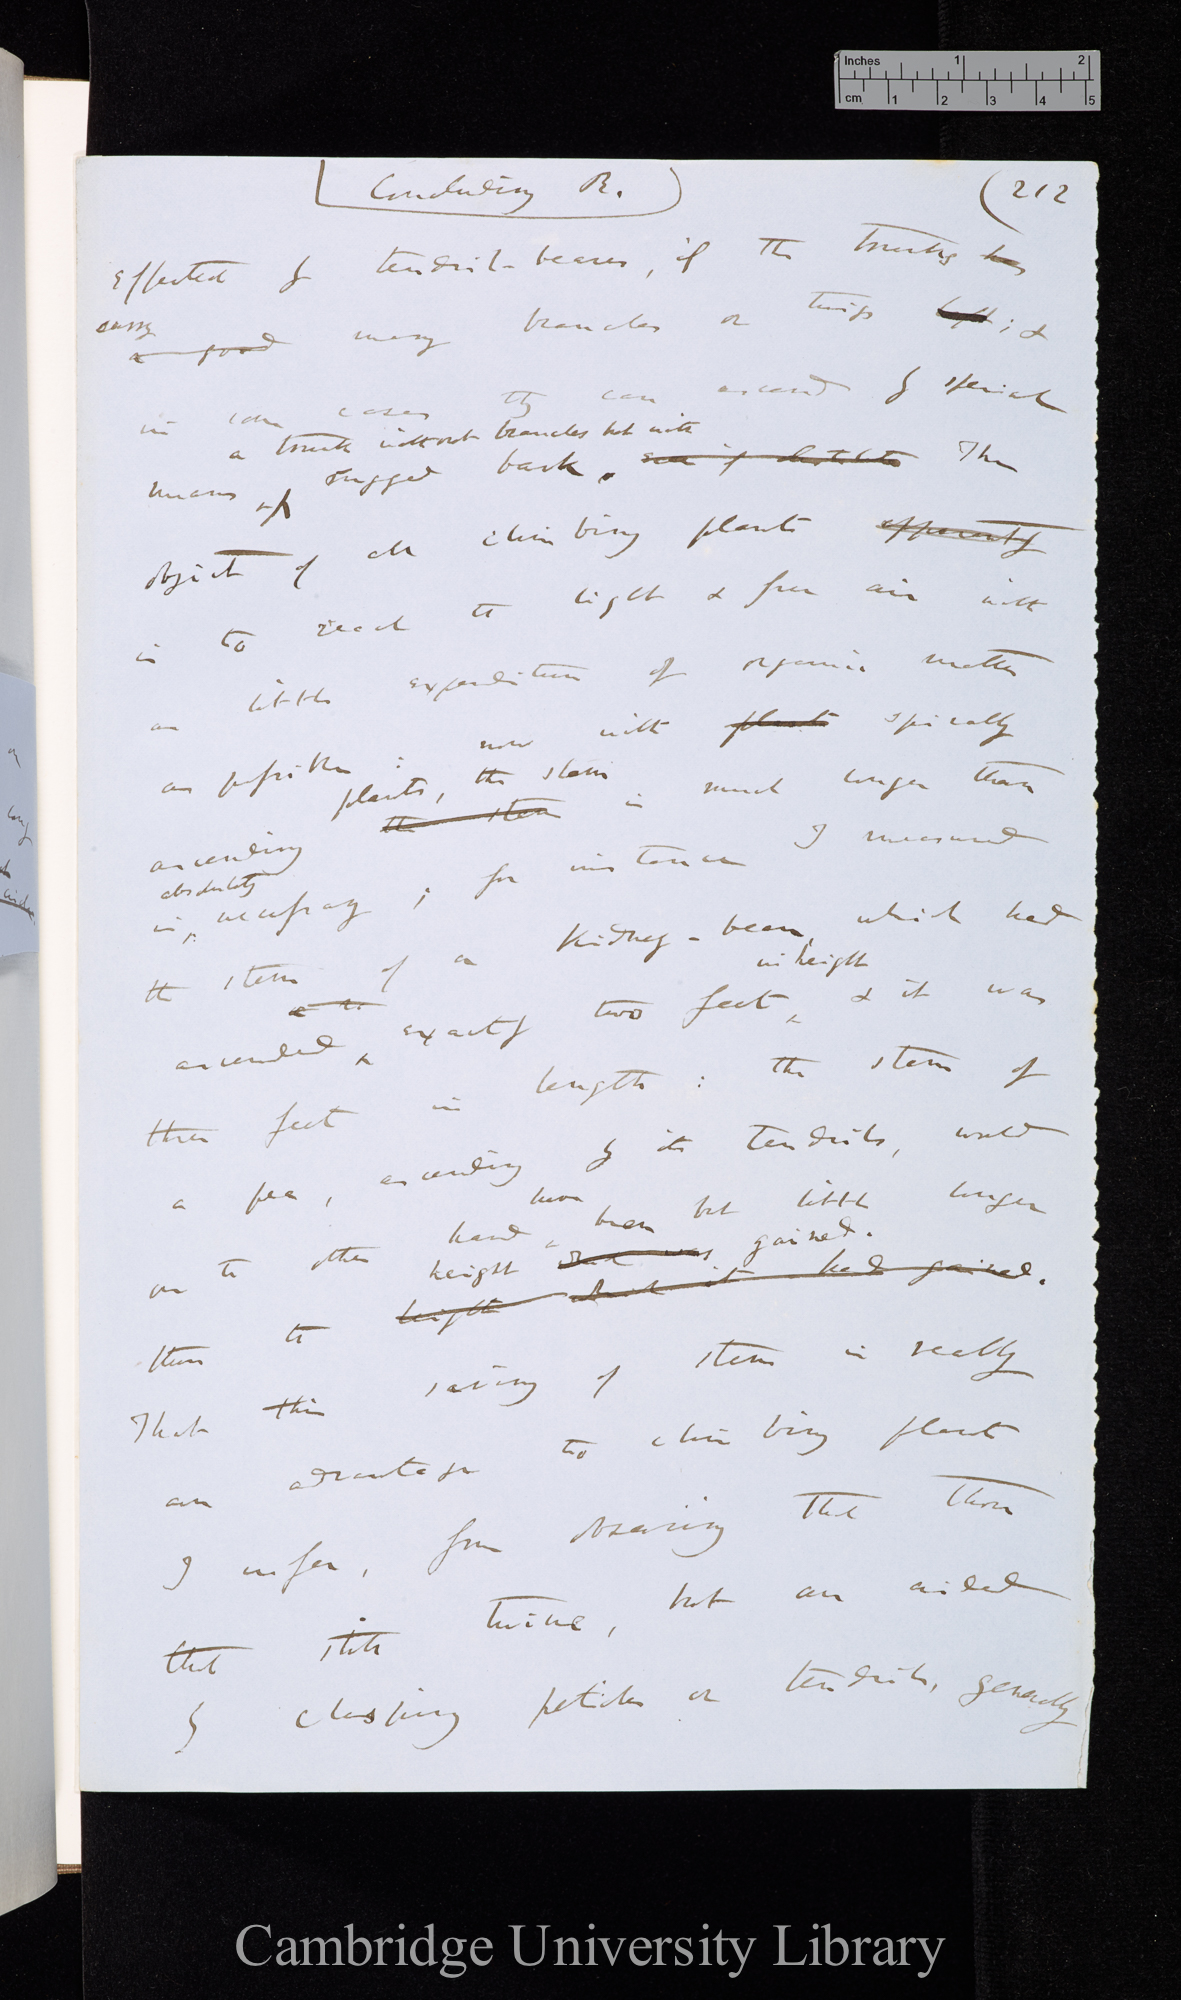 Inches 1 2
cm 1 2 3 4 5
Concluding R. (212
effected by tendril-bearers, if the trunks has
carry
a good many branches or twigs left; &
in some cases they can ascend by special
a trunk without branches but with
means up rugged bark. The
object of all climbing plants apparently
is to reach the light & free air with
as little expenditure of organic matter
as possible: now with plants spirally
plants, the stem
ascending the stem is much longer than
absolutely
is necessary; for instance I measured
the stem of a Kidney-bean, which had
in height
ascended exactly two feet, & it was
three feet in length: the stem of
a pea, ascending by its tendrils, would
have
on the other hand been but little longer
height and was gained.
than the height which it had gained.
That this saving of stem is really
an advantage to climbing plants
I infer, from observing that those
that still twine, but are aided
by clasping petioles or tendrils, generally
Cambridge University Library